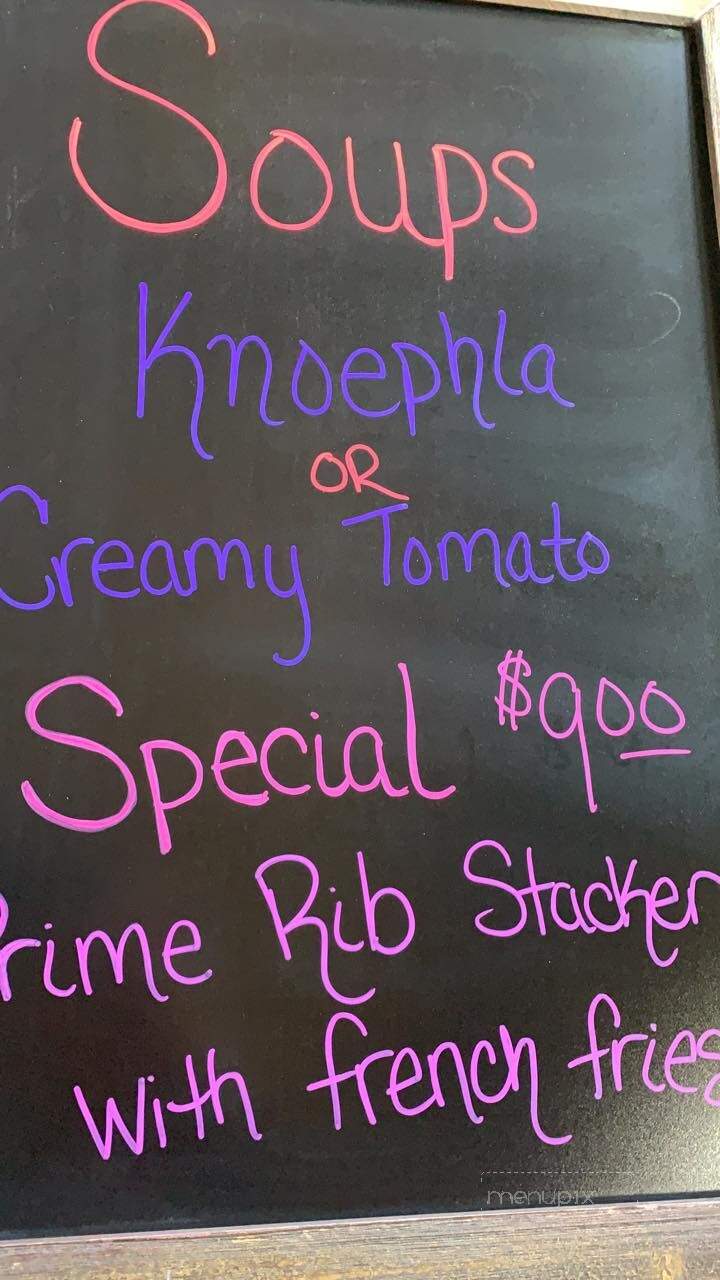 Soups
Knoephla
OR
Creamy Tomato
Special $9.00
Prime Rib Stacker
with french fries
menupix